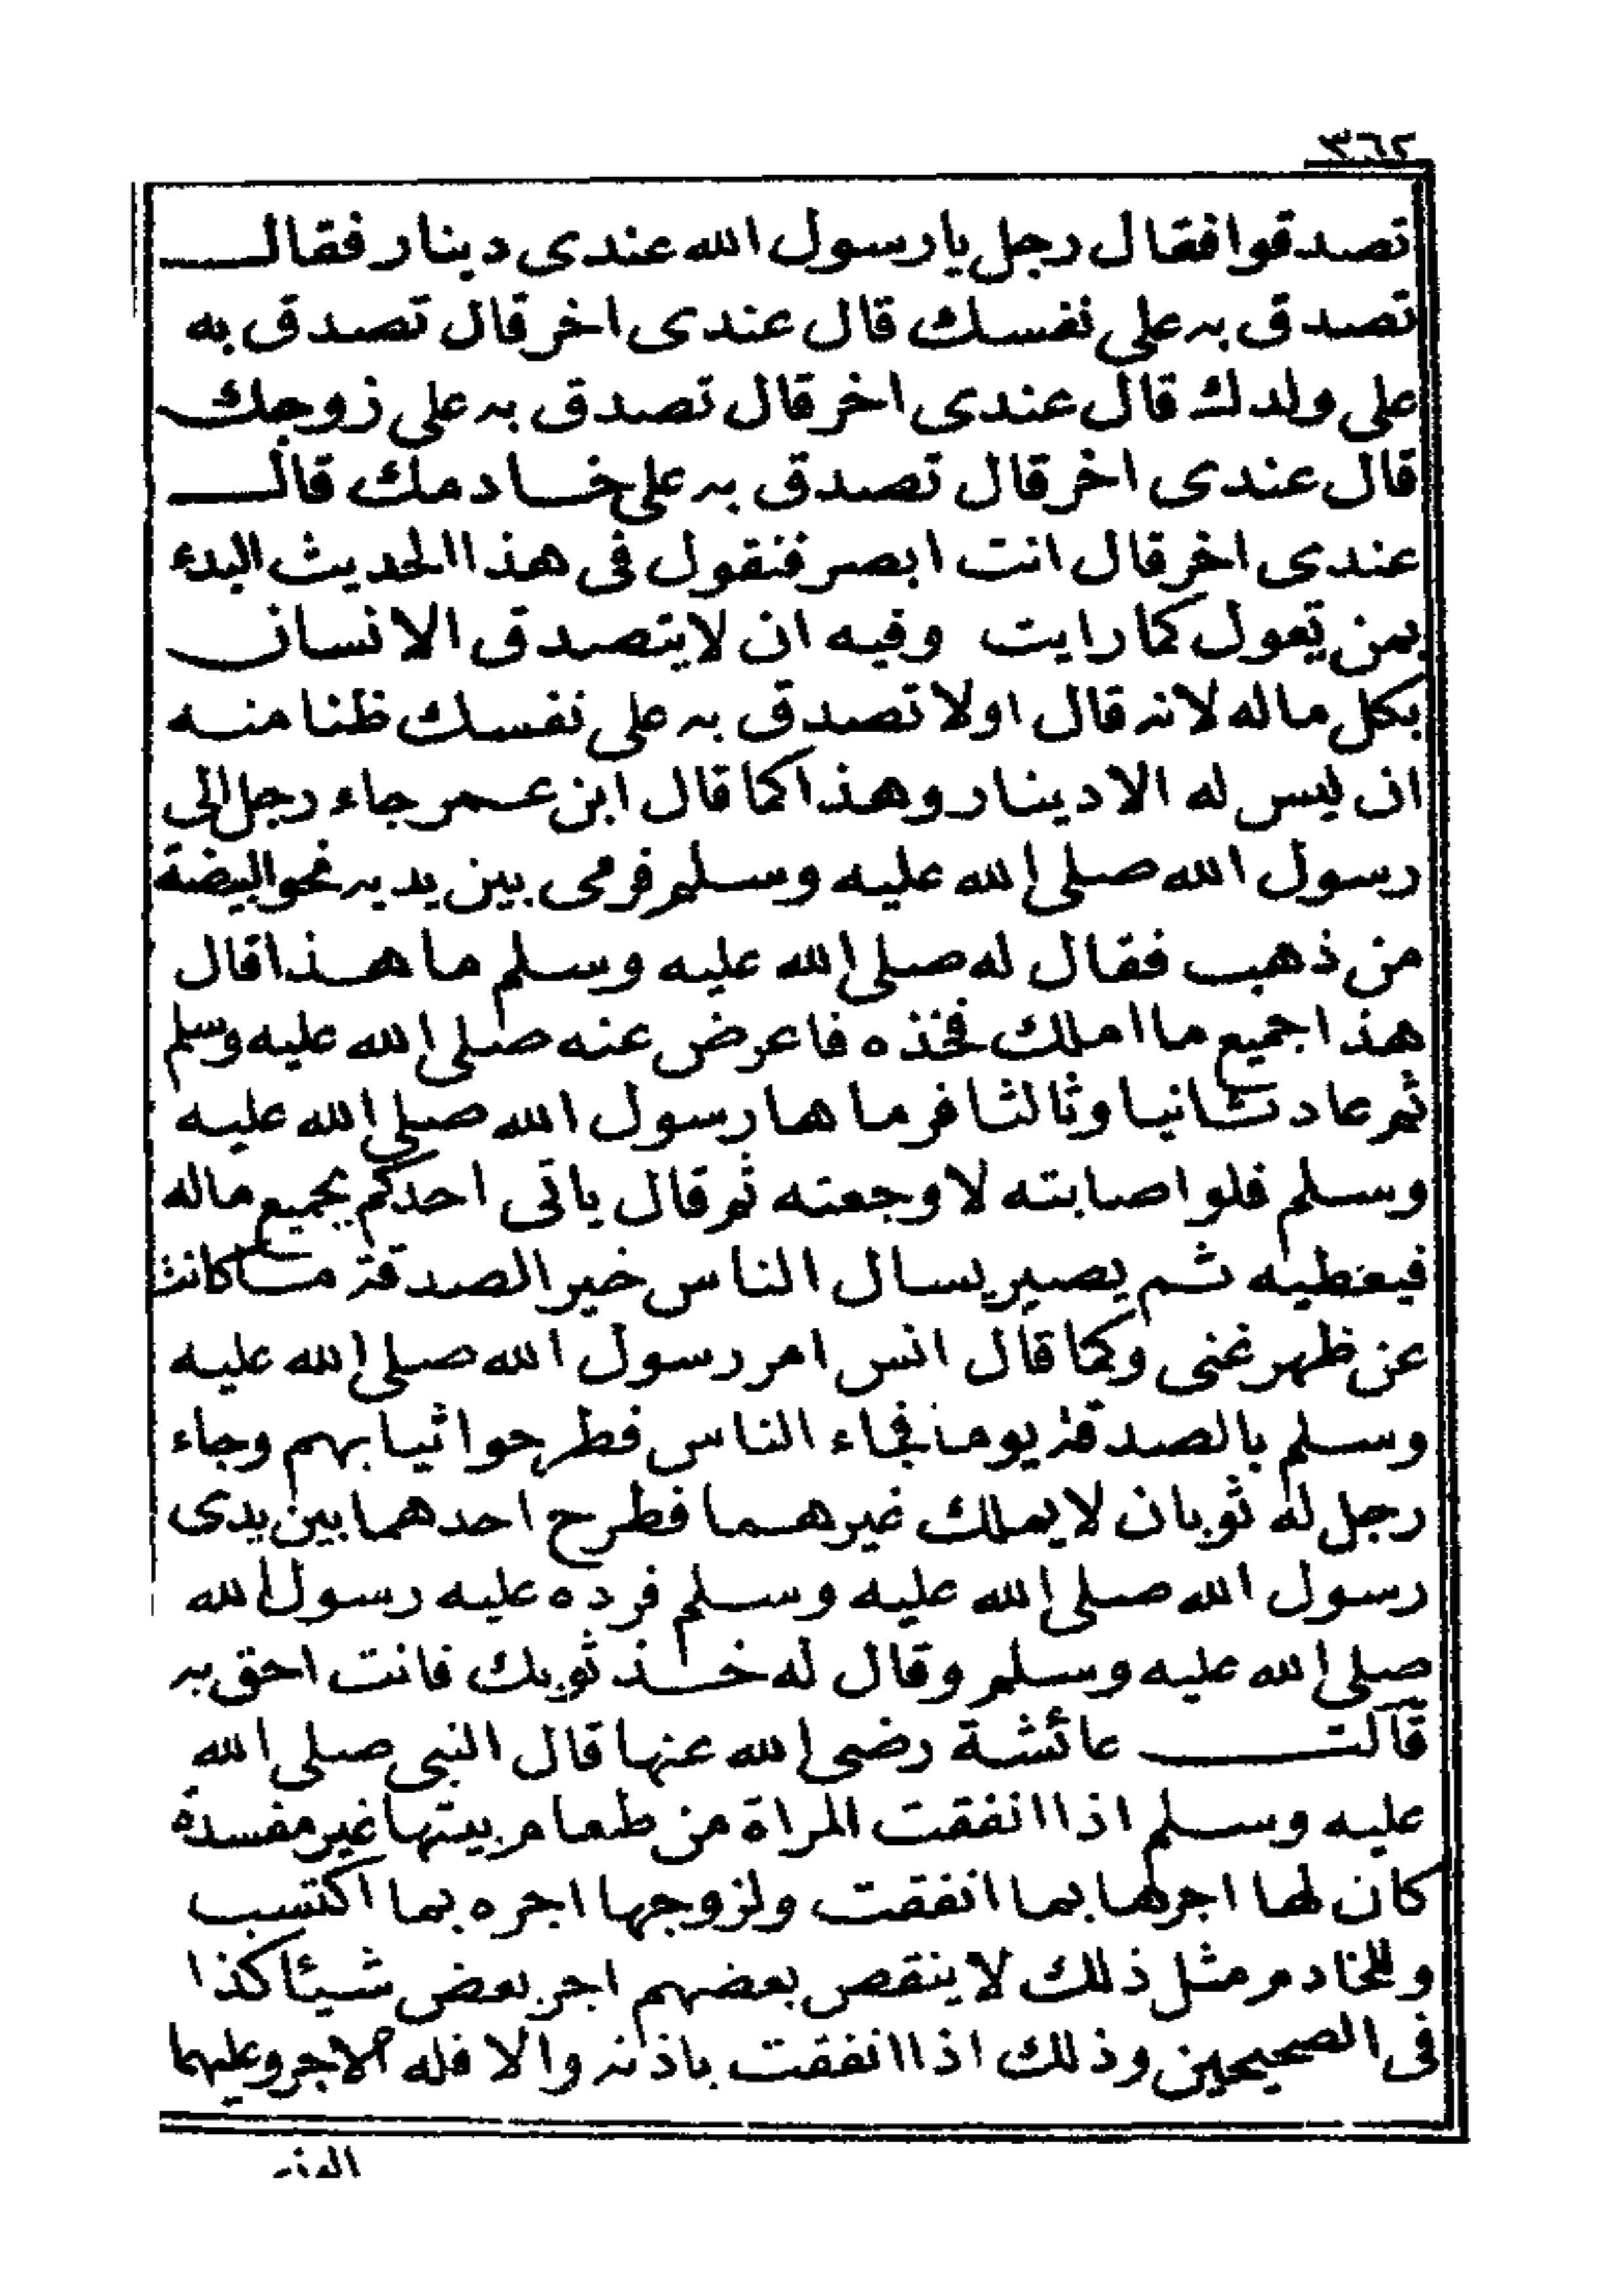 ٣٦٢
تصدقوا فقال رجل يا رسول الله عندى دينار فقال
تصدق به على نفسك قال عندى اخر قال تصدق به
على ولدك قال عندى اخر قال تصدق به على زوجك
قال عندى اخر قال تصدق به على خادمك قال
عندى اخر قال انت ابصر فنقول فى هذا الحديث البدء
بمن تعول كما رايت وفيه ان لا يتصدق الانسان
بكل ماله لانه قال اولا تصدق به على نفسك ظنا منه
ان ليس له الا دينار وهذا كما قال ابن عمر جاء رجل الى
رسول الله صلى الله عليه وسلم فرمى بين يديه نحو البيضة
من ذهب فقال له صلى الله عليه وسلم ما هذا قال
هذا جميع ما املك فخذه فاعرض عنه صلى الله عليه وسلم
ثم عاد ثانيا وثالثا فرماها رسول الله صلى الله عليه
وسلم فلو اصابته لاوجعته ثم قال ياتى احدكم بجميع ماله
فيعطيه ثم يصير يسال الناس خير الصدقة ما كانت
عن ظهر غنى وكما قال انس امر رسول الله صلى الله عليه
وسلم بالصدقة يوما فجاء الناس فطرحوا ثيابهم وجاء
رجل له ثوبان لا يملك غيرهما فطرح احدهما بين يدى
رسول الله صلى الله عليه وسلم فرده عليه رسول الله
صلى الله عليه وسلم وقال له خذ ثوبك فانت احق به
قالت عائشة رضى الله عنها قال النبى صلى الله
عليه وسلم اذا انفقت المراة من طعام بيتها غير مفسدة
كان لها اجرها بما انفقت ولزوجها اجره بما اكتسب
وللخادم مثل ذلك لا ينقص بعضهم اجر بعض شيئا كذا
فى الصحيحين وذلك اذا انفقت باذنه والا فله الاجر وعليها